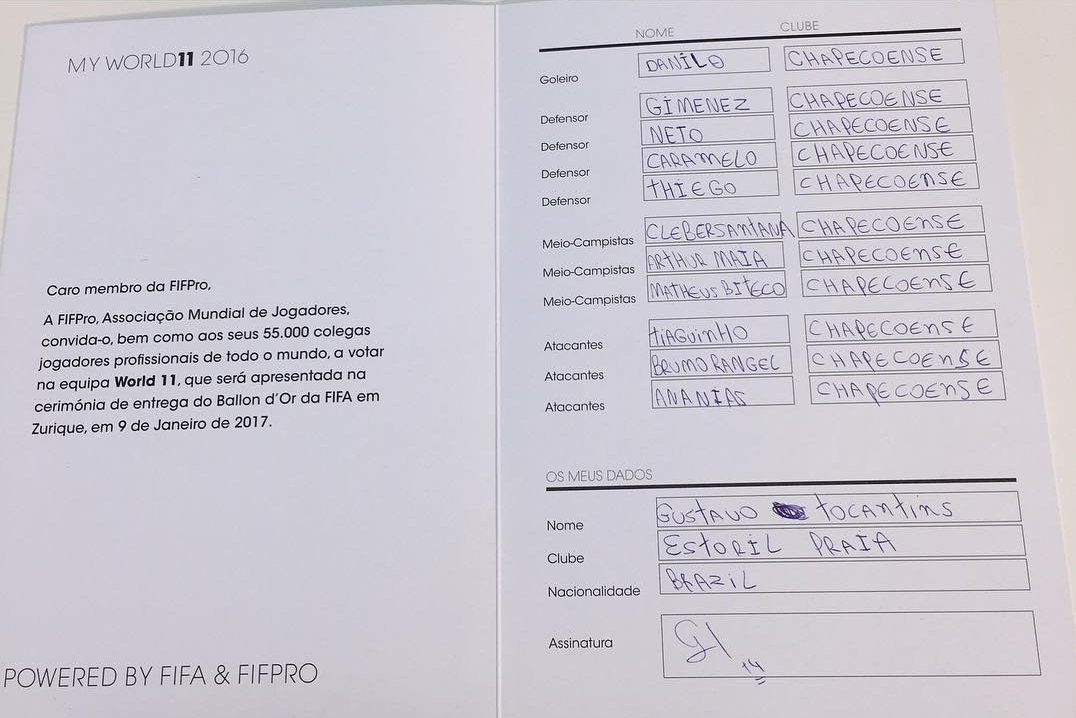 MY WORLD11 2016
Caro membro da FIFPro,
A FIFPro, Associação Mundial de Jogadores,
convida-o, bem como aos seus 55.000 colegas
jogadores profissionais de todo o mundo, a votar
na equipa World 11, que será apresentada na
cerimónia de entrega do Ballon d'Or da FIFA em
Zurique, em 9 de Janeiro de 2017.
POWERED BY FIFA & FIFPRO
NOME CLUBE
Goleiro DANILO CHAPECOENSE
Defensor GIMENEZ CHAPECOENSE
Defensor NETO CHAPECOENSE
Defensor CARAMELO CHAPECOENSE
Defensor THIEGO CHAPECOENSE
Meio-Campistas CLEBERSANTANA CHAPECOENSE
Meio-Campistas ARTHUR MAIA CHAPECOENSE
Meio-Campistas MATHEUS BITECO CHAPECOENSE
Atacantes TIAGUINHO CHAPECOENSE
Atacantes BRUNO RANGEL CHAPECOENSE
Atacantes ANANIAS CHAPECOENSE
OS MEUS DADOS
Nome GUSTAVO TOCANTINS
Clube ESTORIL PRAIA
Nacionalidade BRAZIL
Assinatura
14